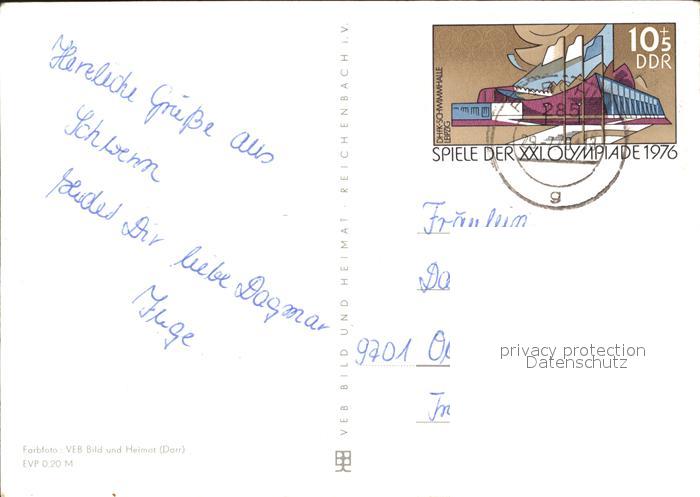 Herzliche Grüße aus
Schwerin
sendet Dir liebe Dagmar
Inge
Farbfoto: VEB Bild und Heimat (Darr)
EVP 0,20 M
VEB BILD UND HEIMAT · REICHENBACH i.V.
10+5
DDR
DHfK-SCHWIMMHALLE
LEIPZIG
SPIELE DER XXI. OLYMPIADE 1976
285
g
Fräulein
Da
9701
privacy protection
Datenschutz